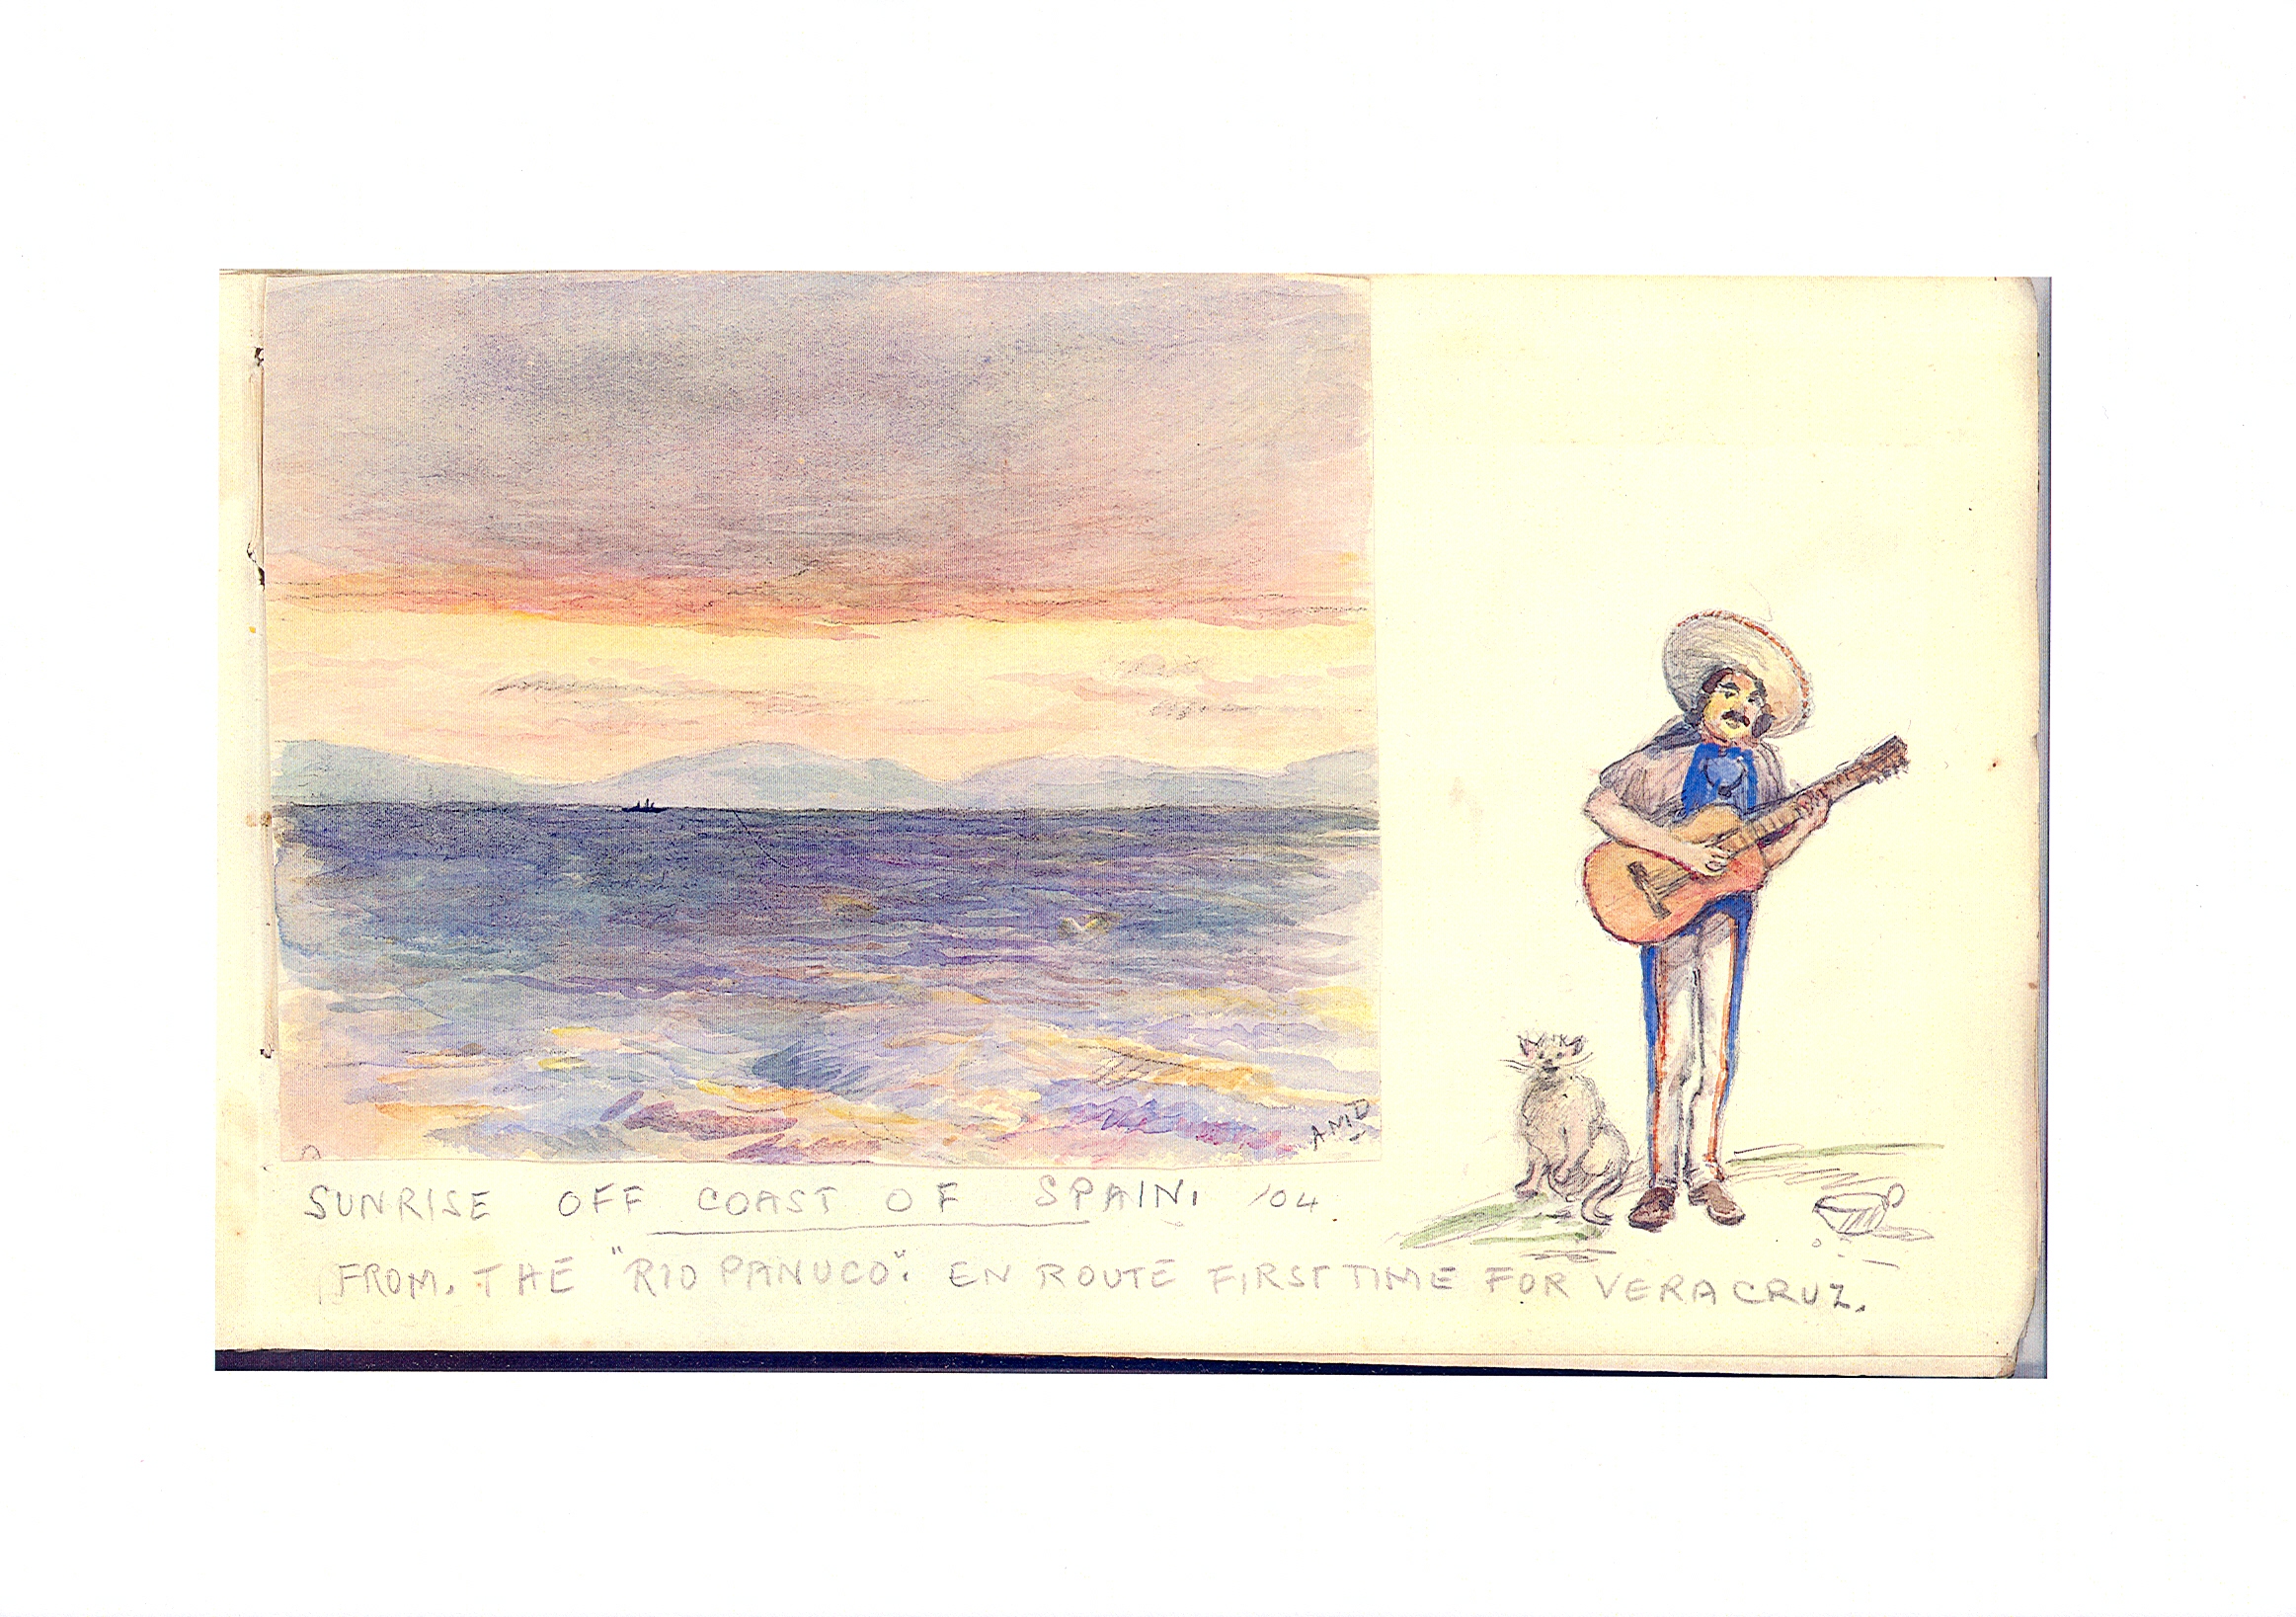 AMD
SUNRISE OFF COAST OF SPAIN. '04
FROM. THE "RIO PANUCO". EN ROUTE FIRST TIME FOR VERA CRUZ.